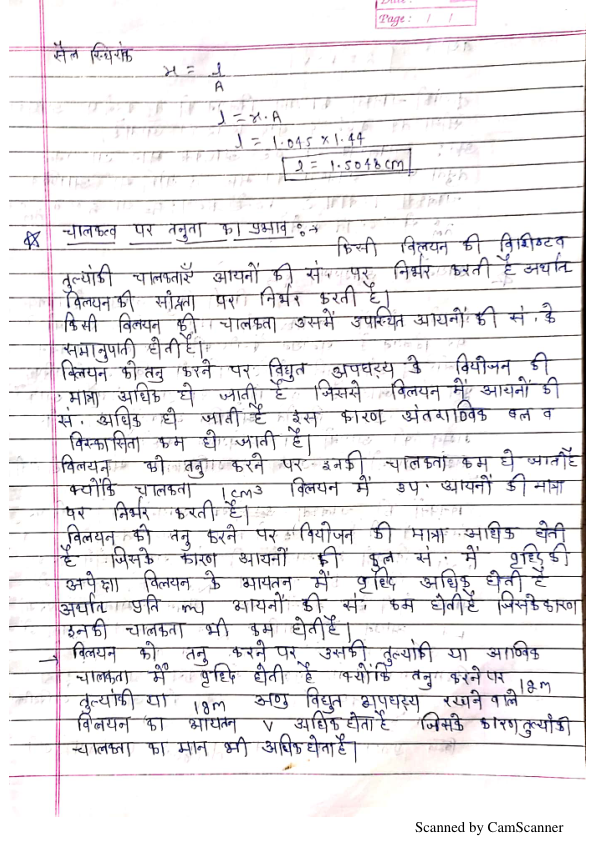 Date :
Page :
सैल स्थिरांक
x = l
A
l = x . A
l = 1.045 x 1.44
l = 1.5048 cm
चालकत्व पर तनुता का प्रभाव :→
किसी विलयन की विशिष्ट व
तुल्यांकी चालकताएँ आयनों की सं. पर निर्भर करती है अर्थात
विलयन की सांद्रता पर निर्भर करती है।
किसी विलयन की चालकता उसमें उपस्थित आयनों की सं. के
समानुपाती होती है।
विलयन को तनु करने पर विद्युत अपघट्य के वियोजन की
मात्रा अधिक हो जाती है जिससे विलयन में आयनों की
सं. अधिक हो जाती है इस कारण अंतराण्विक बल व
विस्कासिता कम हो जाती है।
विलयन को तनु करने पर इनकी चालकता कम हो जाती है
क्योंकि चालकता 1cm3 विलयन में उप. आयनों की मात्रा
पर निर्भर करती है।
विलयन को तनु करने पर वियोजन की मात्रा अधिक होती
है जिसके कारण आयनों की कुल सं. में वृद्धि की
अपेक्षा विलयन के आयतन में वृद्धि अधिक होती है
अर्थात प्रति ml आयनों की सं. कम होती है जिसके कारण
इनकी चालकता भी कम होती है।
→ विलयन को तनु करने पर उसकी तुल्यांकी या आण्विक
चालकता में वृद्धि होती है क्योंकि तनु करने पर 1gm
तुल्यांकी या 1gm अणु विद्युत अपघट्य रखने वाले
विलयन का आयतन V अधिक होता है जिसके कारण तुल्यांकी
चालकता का मान भी अधिक होता है।
Scanned by CamScanner